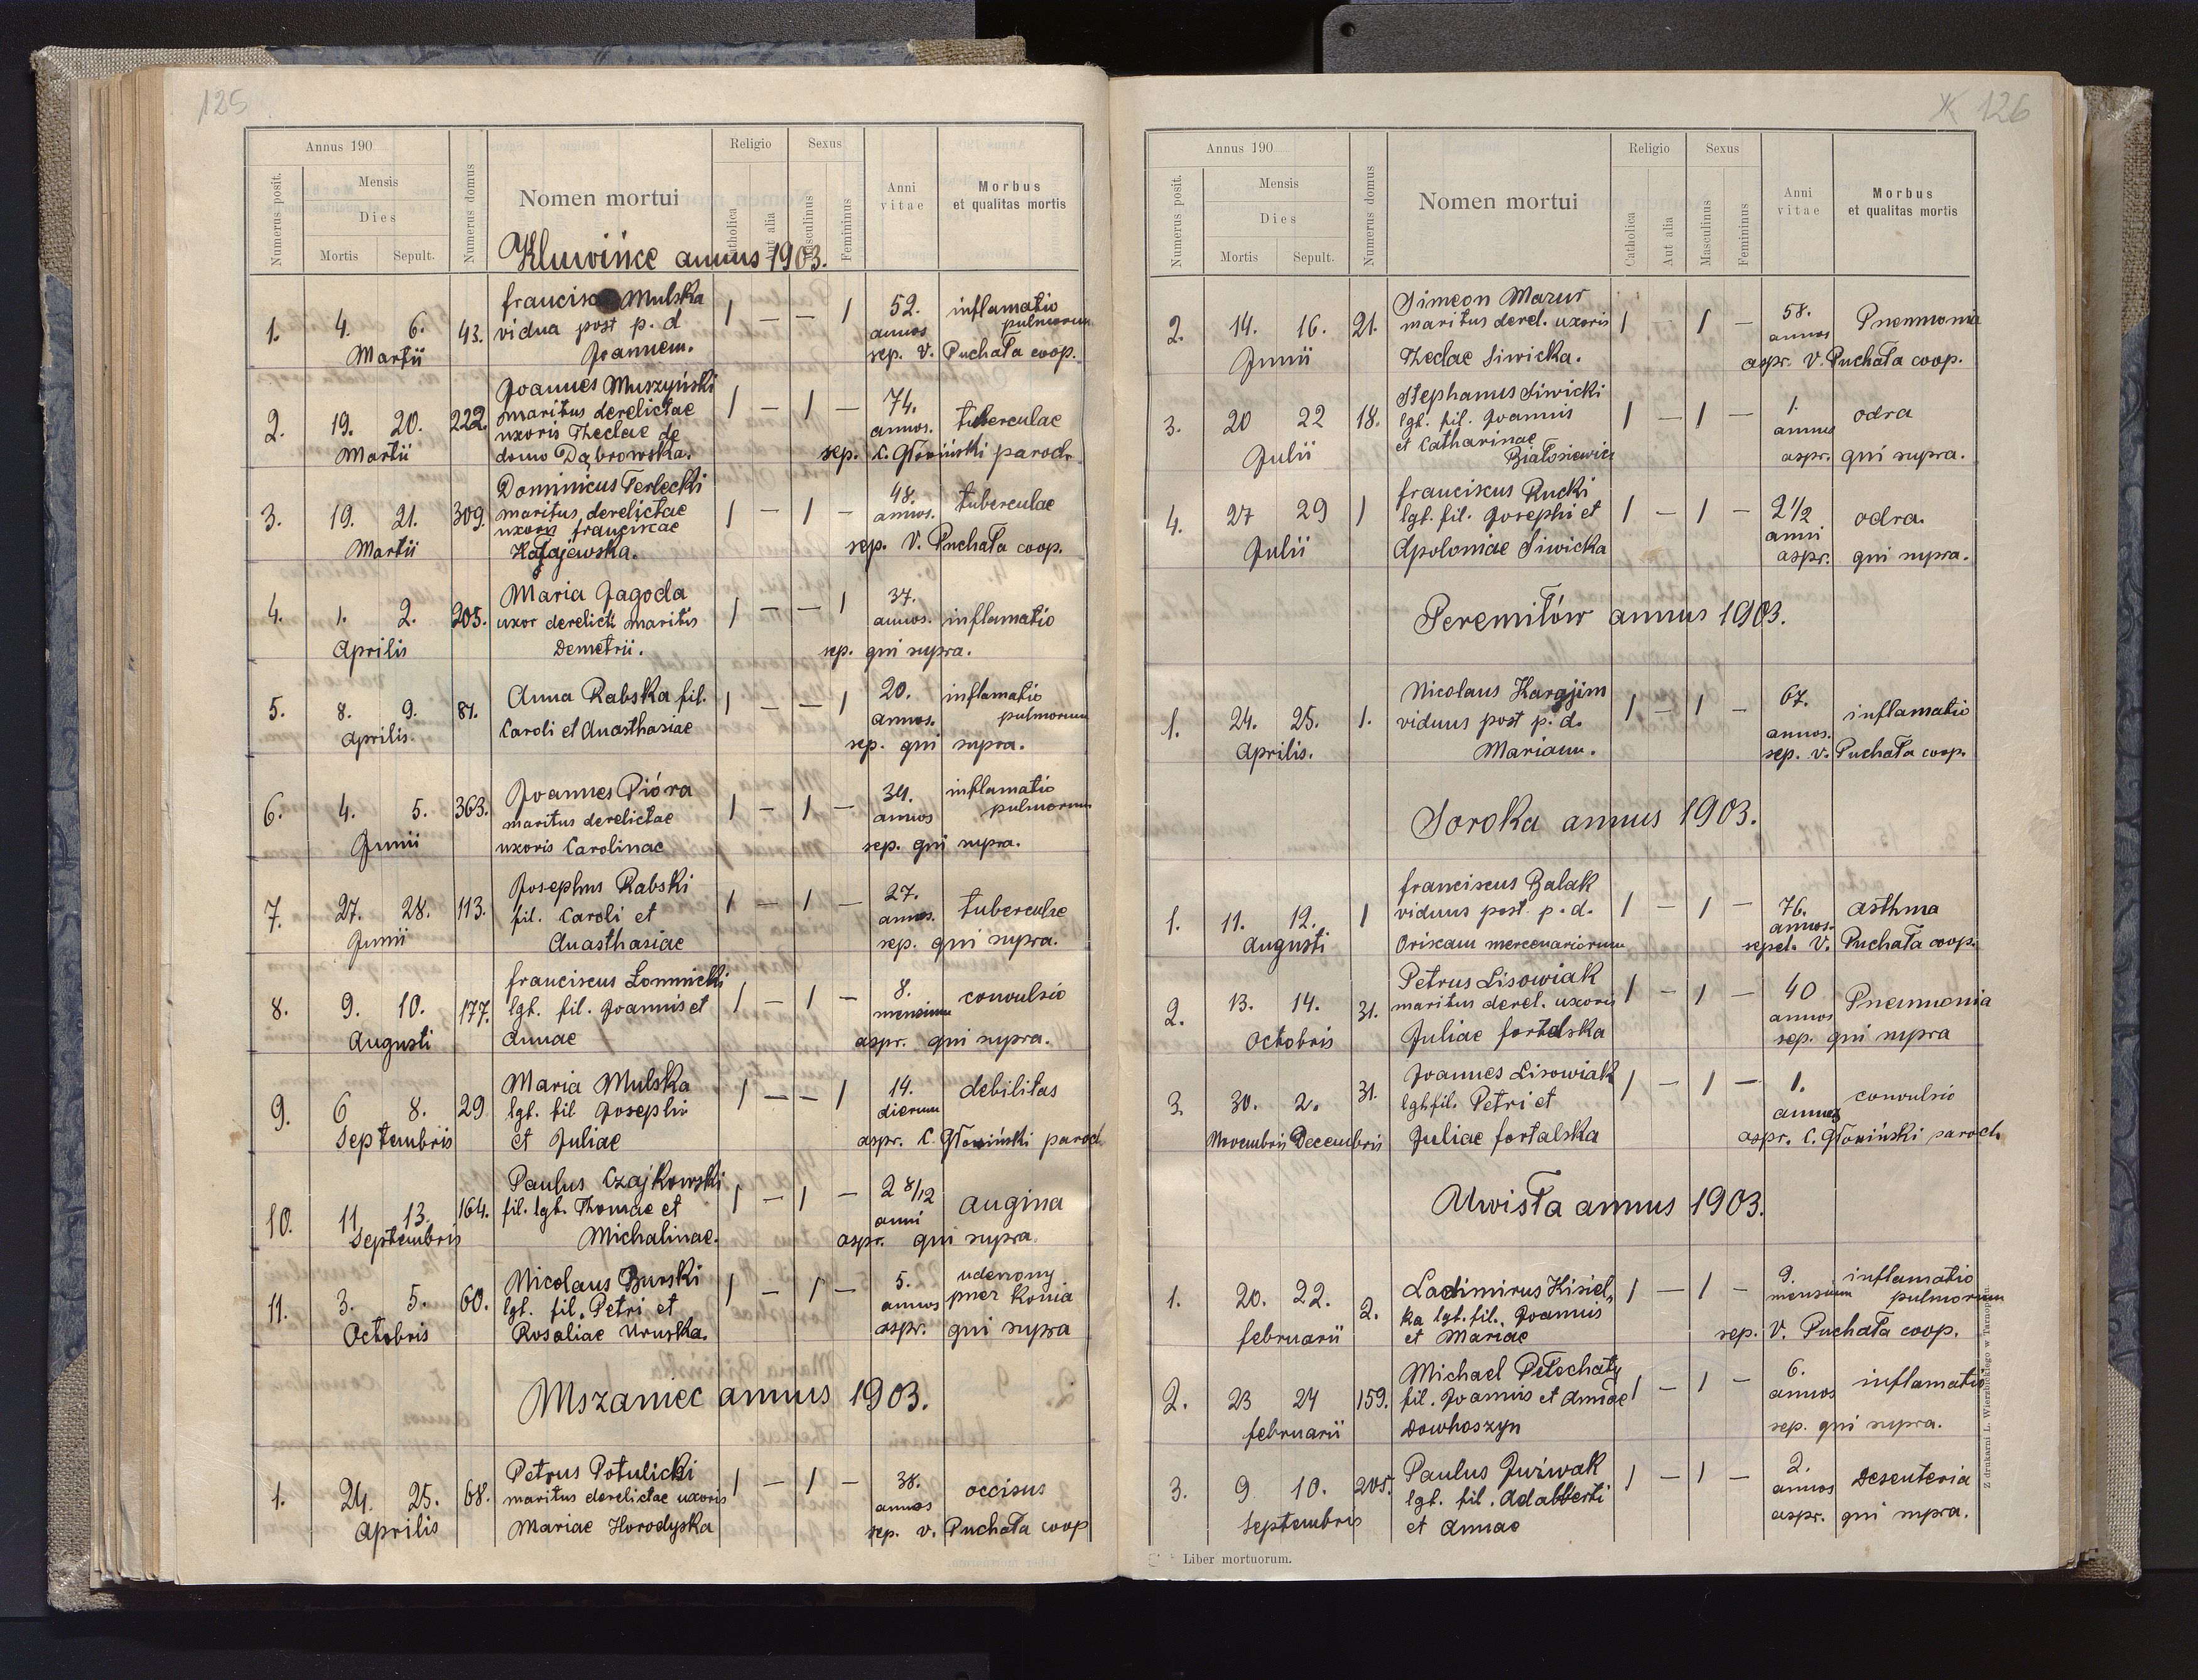 125
Annus 190
Numerus posit.
Mensis
Dies
Mortis Sepult.
Numerus domus
Nomen mortui
Religio
Catholica
Aut alia
Sexus
Masculinus
Femininus
Anni vitae
Morbus et qualitas mortis
Kluwińce annus 1903.
1. 4. 6. 43. francisca Mulska 1 — — 1 52. inflamatio
vidua post p. d annos pulmorum
Martii Joannem. sep. V. Puchała coop.
2. 19. 20. 222. Joannes Muszyński 1 — 1 — 74. tuberculae
maritus derelictae annos.
uxoris Theclae de
Martii domo Dąbrowska. sep. C. Głowiński paroch
3. 19. 21. 309. Dominicus Terlecki 1 — 1 — 48. tuberculae
maritus derelictae annos.
uxoris franciscae
Martii Katajewska. sep. V. Puchała coop.
4. 1. 2. 205. Maria Jagoda 1 — — 1 37.
uxor derelicti maritis annos. inflamatio
Aprilis Demetrii. sep. qui supra.
5. 8. 9. 81. Anna Rabska fil. 1 — — 1 20. inflamatio
Caroli et Anasthasiae annos. pulmorum
Aprilis. sep. qui supra.
6. 4. 5. 363. Joannes Pióra 1 — 1 — 34. inflamatio
maritus derelictae annos pulmorum
Junii uxoris Carolinae sep. qui supra.
7. 27. 28. 113. Josephus Rabski 1 — 1 — 27. tuberculae
fil. Caroli et annos.
Junii Anasthasiae sep. qui supra.
8. 9. 10. 177. franciscus Łomnicki 1 — 1 — 8. convulsio
lgt. fil. Joannis et mensium
Augusti Annae aspr. qui supra.
9. 6 8. 29 Maria Mulska 1 — — 1 14. debilitas
lgt. fil Josephi dierum
Septembris et Juliae aspr. C. Głowiński paroch
10. 11 13. 164. Paulus Czajkowski 1 — 1 — 2 8/12 angina
fil. lgt. Thomae et anni
Septembris Michalinae. aspr. qui supra.
11. 3. 5. 60. Nicolaus Burski 1 — 1 — 5. uderzony
lgt. fil. Petri et annos przez konia
Octobris Rosaliae Uruska. aspr. qui supra
Mszaniec annus 1903.
1. 24. 25. 68. Petrus Potulicki 1 — 1 — 38. occisus
maritus derelictae uxoris annos
Aprilis Mariae Horodyska sep. V. Puchała coop
126
Annus 190
Numerus posit.
Mensis
Dies
Mortis Sepult.
Numerus domus
Nomen mortui
Religio
Catholica
Aut alia
Sexus
Masculinus
Femininus
Anni vitae
Morbus et qualitas mortis
2. 14. 16. 21. Simeon Mazur 1 — 1 — 58. Pneumonia
maritus derel. uxoris annos
Junii Theclae Siwicka. aspr. V. Puchała coop.
3. 20 22 18. Stephanus Siwicki 1 — 1 — 1. odra
lgt. fil. Joannis annus
et Catharinae
Julii Białosiewicz aspr. qui supra.
4. 27 29 1 franciscus Rucki 1 — 1 — 2 1/2 odra.
lgt. fil. Josephi et anni
Julii Apoloniae Siwicka aspr. qui supra.
Peremiłów annus 1903.
1. 24. 25. 1. Nicolaus Haragim 1 — 1 — 67. inflamatio
viduus post p. d. annos.
Aprilis. Mariann. sep. V. Puchała coop.
Soroka annus 1903.
1. 11. 12. 1 franciscus Balak 1 — 1 — 76. asthma
viduus post p. d. annos.
Augusti mercenariorum sepel. V. Puchała coop.
2. 13. 14. 31. Petrus Lisowiak 1 — 1 — 40 Pneumonia
maritus derel. uxoris annos
Octobris Juliae fortalska sep. qui supra
3. 30. 2. 31. Joannes Lisowiak 1 — 1 — 1. convulsio
lgt fil. Petri et annus
Novembris Decembris Juliae fortalska aspr. C. Głowiński paroch
Uwisła annus 1903.
1. 20. 22. 2. Ladimirus Kisiel„ 1 — 1 — 9. inflamatio
ka lgt. fil. Joannis mensium pulmorum
februarii et Mariae sep. V. Puchała coop.
2. 23 24 159. Michael Pełechaty 1 — 1 — 6. inflamatio
fil. Joannis et Annae annos
februarii Dowhoszyn sep. qui supra.
3. 9 10. 205. Paulus Juźwak 1 — 1 — 2. Desenteria
lgt. fil. Adalberti annos
Septembris et Annae aspr. qui supra.
Liber mortuorum.
Z drukarni L. Wierzbickiego w Tarnopolu.